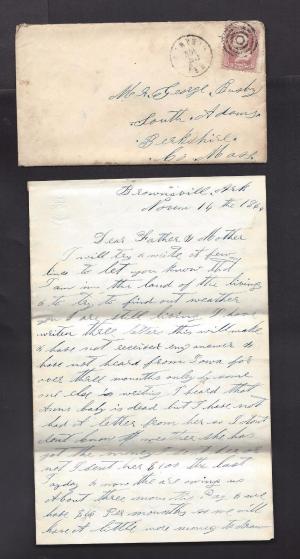 Mr. George Busby
South Adams
Berkshire
Co. Mass.
Brownsvill, Ark
Novem 14 the 186
Dear Father & Mother
I will try & write a few
lines to let you know that
I am in the land of the living
& to try to find out weather
you are still living I have
writen three letter this will make
& have not received any answer &
have not heard from Iowa for
over three mounths only
me else is writing I heard that
baby is dead but I have not
had a letter from her so I don't
don't know if weather she has
got the money I
not I sent her $100 the last
Payday & now the are owing us
About three mounths Pay & we
have $16 Per mounths so we will
have a little more money to